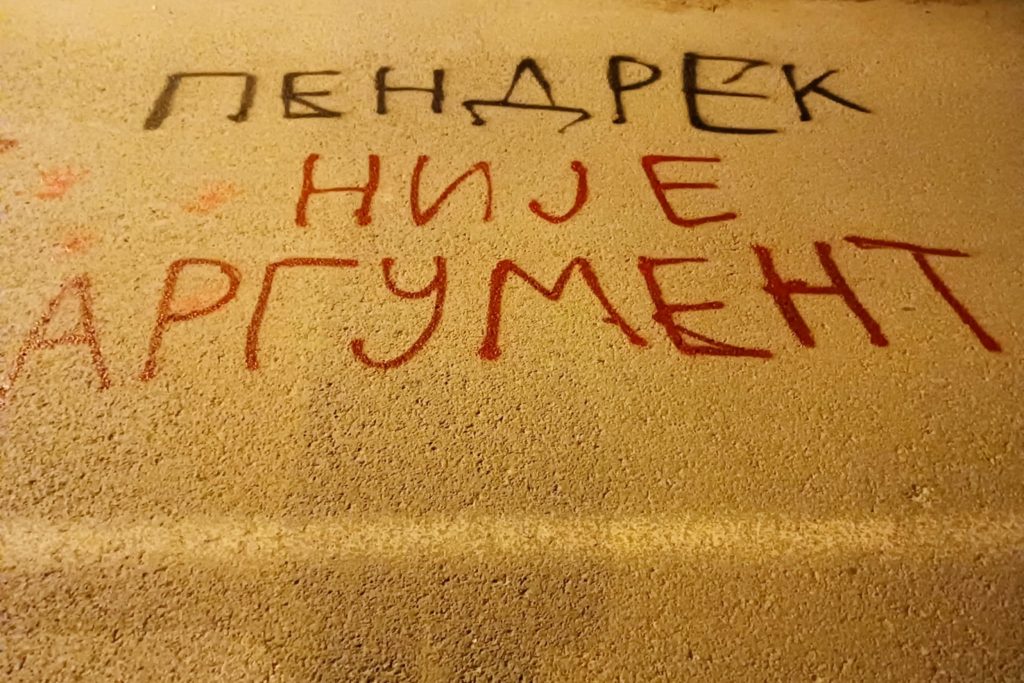 ПЕНДРЕК
НИЈЕ
АРГУМЕНТ